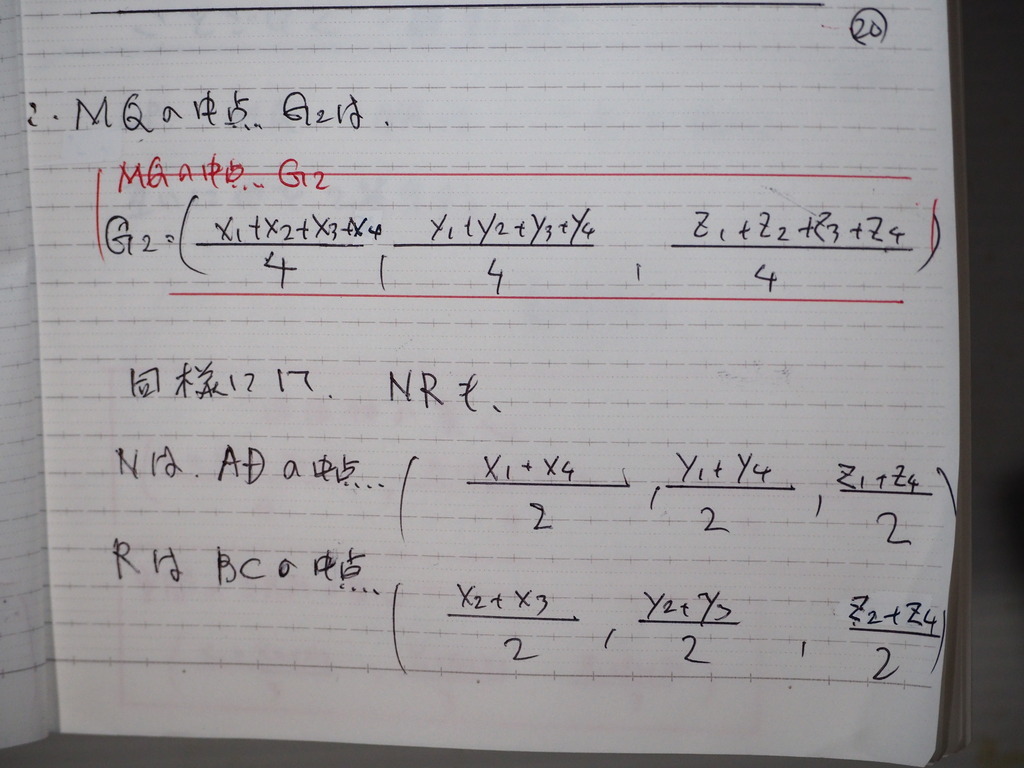 ⑳
∴ MQの中点 G₂は.
MQの中点 G₂
G₂=(x₁+x₂+x₃+x₄/4, y₁+y₂+y₃+y₄/4, z₁+z₂+z₃+z₄/4)
同様にして. NRも、
Nは. ADの中点…(x₁+x₄/2, y₁+y₄/2, z₁+z₄/2)
Rは BCの中点…(x₂+x₃/2, y₂+y₃/2, z₂+z₄/2)